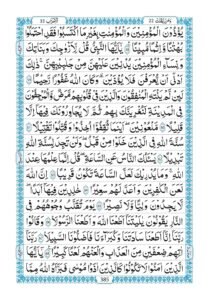 وَمَنْ يَّقْنُتْ ٢٢
الْاَحْزَاب ٣٣
يُؤْذُوْنَ الْمُؤْمِنِيْنَ وَالْمُؤْمِنٰتِ بِغَيْرِ مَا اكْتَسَبُوْا فَقَدِ احْتَمَلُوْا
بُهْتَانًا وَّاِثْمًا مُّبِيْنًا يٰۤاَيُّهَا النَّبِيُّ قُلْ لِّاَزْوَاجِكَ وَبَنٰتِكَ
وَنِسَآءِ الْمُؤْمِنِيْنَ يُدْنِيْنَ عَلَيْهِنَّ مِنْ جَلَابِيْبِهِنَّ ذٰلِكَ
اَدْنٰۤى اَنْ يُّعْرَفْنَ فَلَا يُؤْذَيْنَ وَكَانَ اللّٰهُ غَفُوْرًا رَّحِيْمًا
لَئِنْ لَّمْ يَنْتَهِ الْمُنٰفِقُوْنَ وَالَّذِيْنَ فِيْ قُلُوْبِهِمْ مَّرَضٌ وَّالْمُرْجِفُوْنَ
فِي الْمَدِيْنَةِ لَنُغْرِيَنَّكَ بِهِمْ ثُمَّ لَا يُجَاوِرُوْنَكَ فِيْهَاۤ اِلَّا
قَلِيْلًا مَّلْعُوْنِيْنَ اَيْنَمَا ثُقِفُوْۤا اُخِذُوْا وَقُتِّلُوْا تَقْتِيْلًا
سُنَّةَ اللّٰهِ فِي الَّذِيْنَ خَلَوْا مِنْ قَبْلُ وَلَنْ تَجِدَ لِسُنَّةِ اللّٰهِ
تَبْدِيْلًا يَسْئَلُكَ النَّاسُ عَنِ السَّاعَةِ قُلْ اِنَّمَا عِلْمُهَا عِنْدَ
اللّٰهِ وَمَا يُدْرِيْكَ لَعَلَّ السَّاعَةَ تَكُوْنُ قَرِيْبًا اِنَّ اللّٰهَ
لَعَنَ الْكٰفِرِيْنَ وَاَعَدَّ لَهُمْ سَعِيْرًا خٰلِدِيْنَ فِيْهَاۤ اَبَدًا
لَا يَجِدُوْنَ وَلِيًّا وَّلَا نَصِيْرًا يَوْمَ تُقَلَّبُ وُجُوْهُهُمْ فِي
النَّارِ يَقُوْلُوْنَ يٰلَيْتَنَاۤ اَطَعْنَا اللّٰهَ وَاَطَعْنَا الرَّسُوْلَا وَقَالُوْا
رَبَّنَاۤ اِنَّاۤ اَطَعْنَا سَادَتَنَا وَكُبَرَآءَنَا فَاَضَلُّوْنَا السَّبِيْلَا رَبَّنَاۤ
اٰتِهِمْ ضِعْفَيْنِ مِنَ الْعَذَابِ وَالْعَنْهُمْ لَعْنًا كَبِيْرًا يٰۤاَيُّهَا
الَّذِيْنَ اٰمَنُوْا لَا تَكُوْنُوْا كَالَّذِيْنَ اٰذَوْا مُوْسٰى فَبَرَّاَهُ اللّٰهُ مِمَّا
385